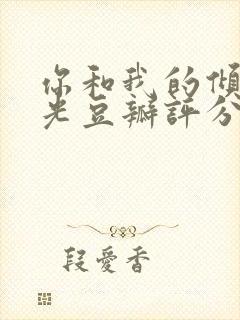 你和我的倾
光豆瓣评分
段爱香